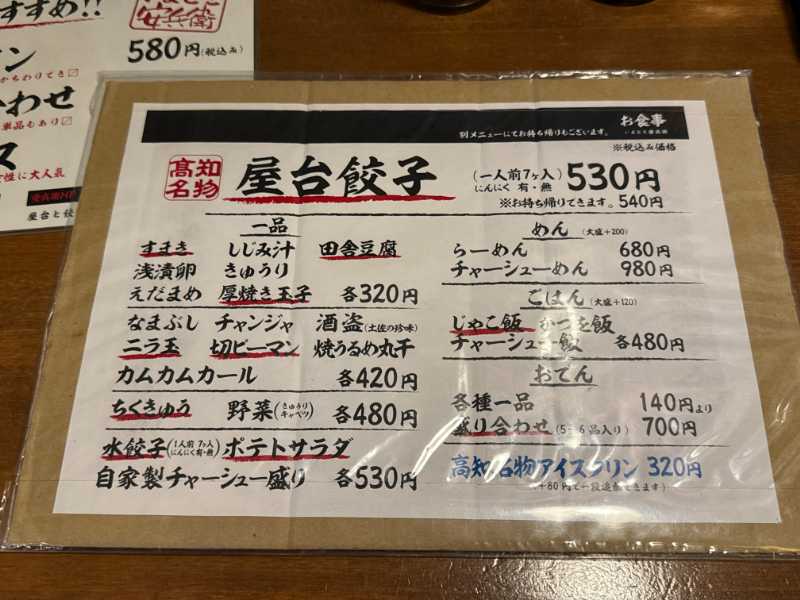 すすめ!!
580円(税込み)
かちわりでき〼
わせ
単品もあり〼
性に大人気
お食事
別メニューにてお持ち帰りもございます。
※税込み価格
高知名物
屋台餃子
(一人前7ヶ入)
にんにく 有・無
530円
※お持ち帰りできます。540円
一品
すまき しじみ汁 田舎豆腐
浅漬卵 きゅうり
えだまめ 厚焼き玉子 各320円
なまぶし チャンジャ 酒盗(土佐の珍味)
ニラ玉 切ピーマン 焼うるめ丸干
カムカムカール 各420円
ちくきゅう 野菜(きゅうり キャベツ) 各480円
水餃子(1人前 7ヶ入 にんにく有・無) ポテトサラダ
自家製チャーシュー盛り 各530円
めん (大盛+200)
らーめん 680円
チャーシューめん 980円
ごはん (大盛+120)
じゃこ飯 かつを飯
チャーシュー飯 各480円
おでん
各種一品 140円より
盛り合わせ(5〜6品入り) 700円
高知名物アイスクリン 320円
(+80円で一段追加できます)